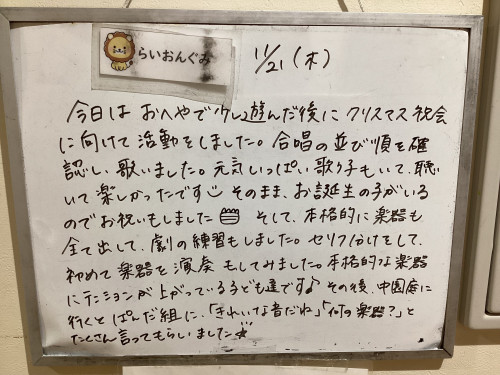 らいおんぐみ
11/21(木)
今日は おへやで少し遊んだ後に クリスマス祝会
に向けて 活動をしました。合唱の並び順を確
認し、歌いました。元気いっぱい歌う子もいて、聴
いて楽しかったです そのまま、お誕生の子がいる
のでお祝いもしました そして、本格的に楽器も
全て出して、劇の練習もしました。セリフ分けをして、
初めて楽器を演奏もしてみました。本格的な楽器
にテンションが上がっている子ども達です♪ その後、中園庭に
行くと ぱんだ組に、「きれいな音だね」「何の楽器？」と
たくさん言ってもらいました☆